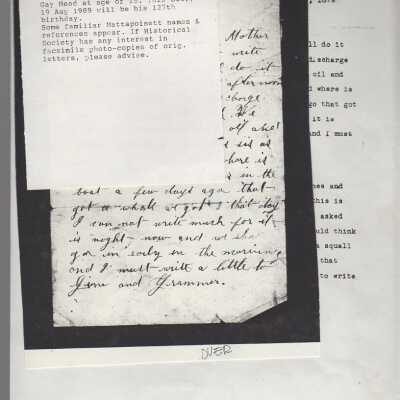 Gay Head at age of
19 Aug 1989 will be his 127th
birthday.
Some familiar Mattapoisett names &
references appear. If Historical
Society has any interest in
facsimile photo-copies of orig.
letters, please advise.
Mother
write
do it
afternoon
We
off abot
sid as
hore is
s in the
boat a few days ago That
got a whale at got that day
I can not write much for it
is night now and we sha
go in early in the morning
and I must write a little to
Gime and Grammer.
OVER
ll do it
discharge
oil and
d where is
go that got
it is
and I must
nes and
this is
asked
uld think
a squall
that
to write